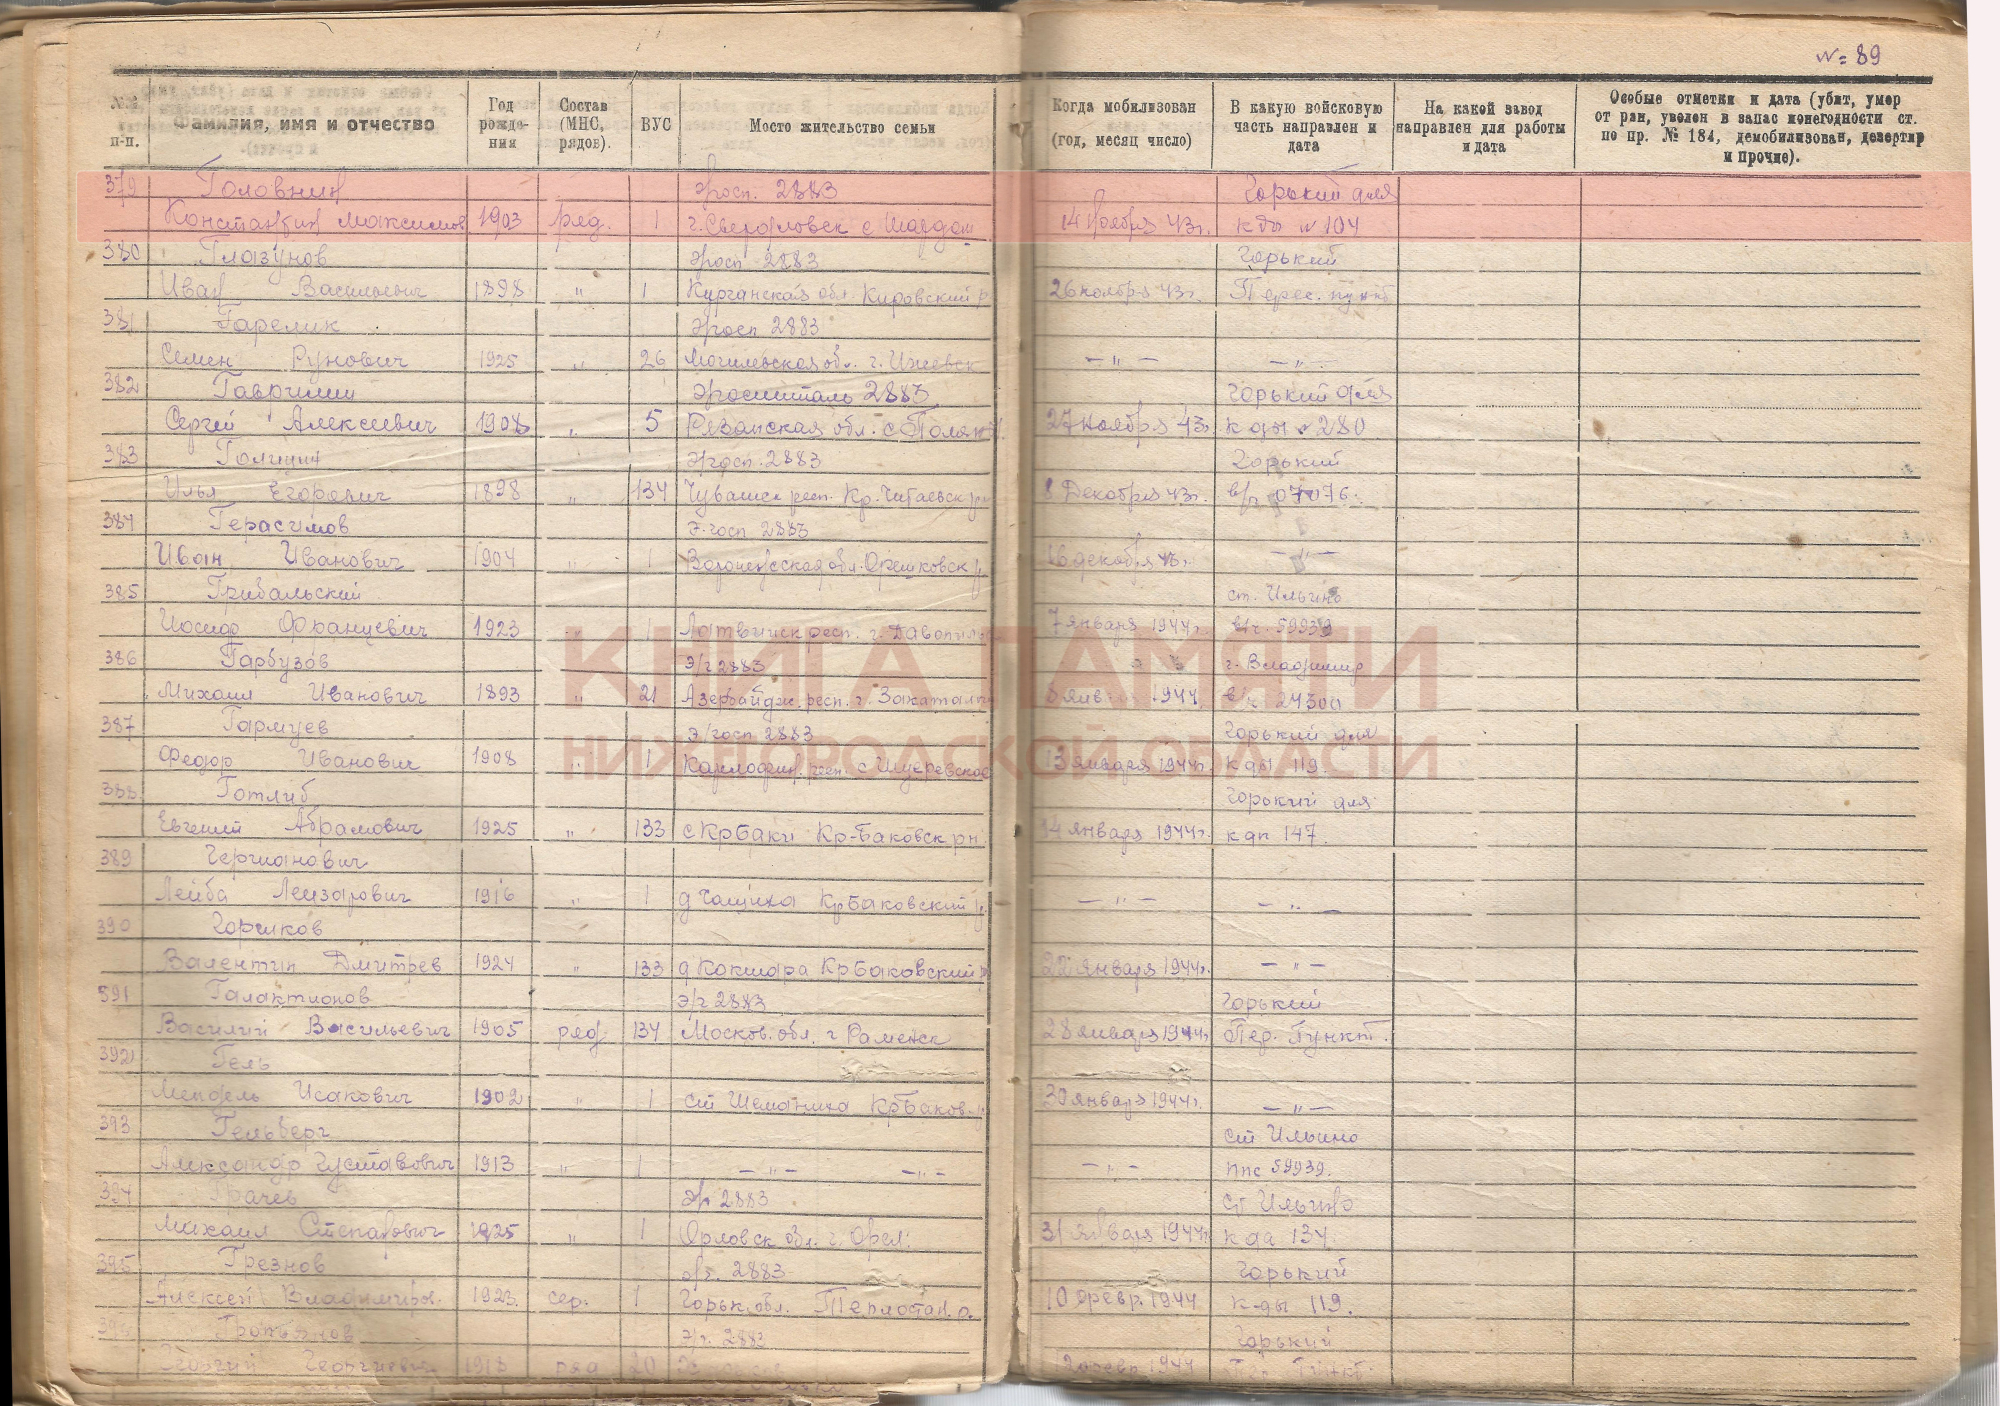 № 89
№№ п-п.
Фамилия, имя и отчество
Год рождения
Состав (МНС, рядов).
ВУС
Место жительство семьи
Когда мобилизован (год, месяц число)
В какую войсковую часть направлен и дата
На какой завод направлен для работы и дата
Особые отметки и дата (убит, умер от ран, уволен в запас понегодности ст. по пр. № 184, демобилизован, дезертир и прочие).
379 Головнин Эгосп. 2883 Горький для
Константин Максимов 1903 ряд. 1 г. Свердловск с 14 ноября 43г. кды № 104
380 Глазунов Эгосп 2883 Горький
Иван Васильевич 1898 " 1 Курганская обл. Кировский р 26 ноября 43г. Перес. пункт
381 Гарелик Эгосп 2883
Семен Рунович 1925 " 26 Могилевская обл. г. Ижевск — " — — " —
382 Гаврилин Эгоспиталь 2883 Горький для
Сергей Алексеевич 1908 " 5 Рязанская обл. с Поляны 27 ноября 43г. к ды № 280
383 Голицин Эгосп. 2883 Горький
Илья Егорович 1898 " 134 Чувашск респ. Кр. Читаевск 8 Декабря 43г. в/ч 07076.
384 Герасимов Э.госп 2883
Иван Иванович 1904 " 1 Воронежская обл. 16 декабря 43г. — " —
385 Грибальский ст. Ильино
Иосиф Францевич 1923 " 1 Латвийск респ. г. 7 января 1944г. в/ч. 59939
386 Гарбузов Э/г 2883 г. Владимир
Михаил Иванович 1893 " 21 Азербайдж. респ. г. Закаталы 8 янв 1944 в/ч 24300
387 Гармуев Э/госп 2883 Горький для
Федор Иванович 1908 " 1 респ с 13 января 1944г. к ды 119.
388 Готлиб Горький для
Евгений Абрамович 1925 " 133 с Кр Баки Кр-Баковск рн. 14 января 1944г. к дп 147.
389
Лейба Лейзарович 1916 " 1 д Чащиха Кр Баковский р. — " — — " —
390 Горшков
Валентин Дмитрев 1924 " 133 д Кокшара Кр Баковский 22 января 1944г. — " —
591 Галактионов Э/г 2883 Горький
Василий Васильевич 1905 ряд. 134 Москов. обл. г Раменск 28 января 1944г. Пер. Пункт.
392 Гель
Мендель Исакович 1902 " 1 ст Шеманиха Кр Баков. 30 января 1944г. — " —
393 Гельберг ст Ильино
Александр Густавович 1913 " 1 — " — — " — — " — ппс 59939.
394 Грачев Э/г 2883 ст Ильино
Михаил Степанович 1925 " 1 Орловск обл. г. Орел. 31 января 1944г. к да 134.
395 Грезнов э/г. 2883 Горький
Алексей Владимиров. 1923. сер. 1 Горьк. обл. Теплостан. р. 10 февр. 1944 к-ды 119.
Э/г. 2883 Горький
Георгиевич 1918 ряд 20 12 февр 1944 Пер. Пункт.
КНИГА ПАМЯТИ
НИЖЕГОРОДСКОЙ ОБЛАСТИ